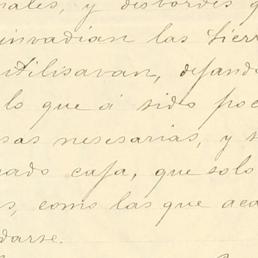 nales, y desbordes
invadian las tierr
utilisavan, dejando
lo que á sido poc
sas nesesarias, y
uado cafa, que solo
s, como las que aca
darse.